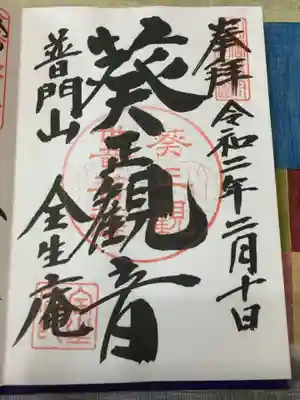 奉拝
令和二年二月十日
葵正観音
普門山
全生庵
葵正観
全生